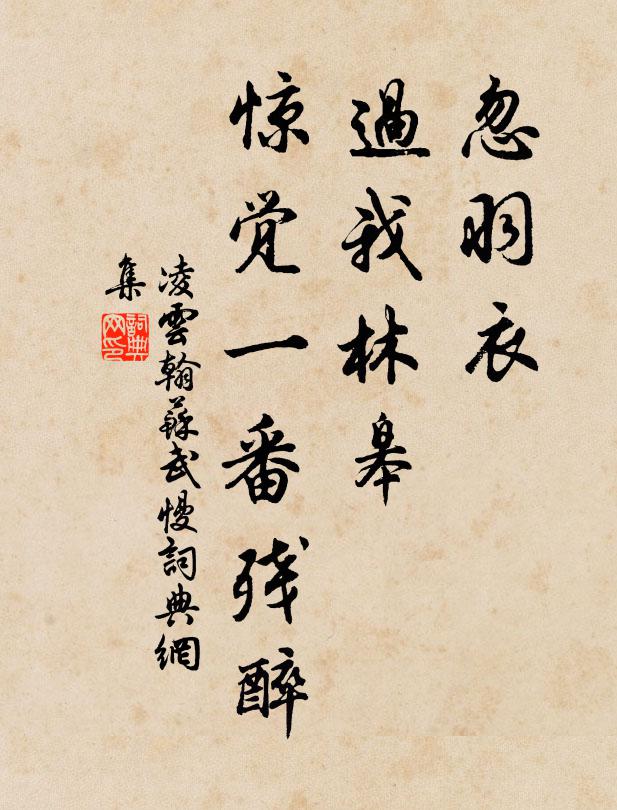 忽羽衣
過我林皋
惊觉一番残醉
凌雲翰蘇武慢詞典網
集
詞典
网印